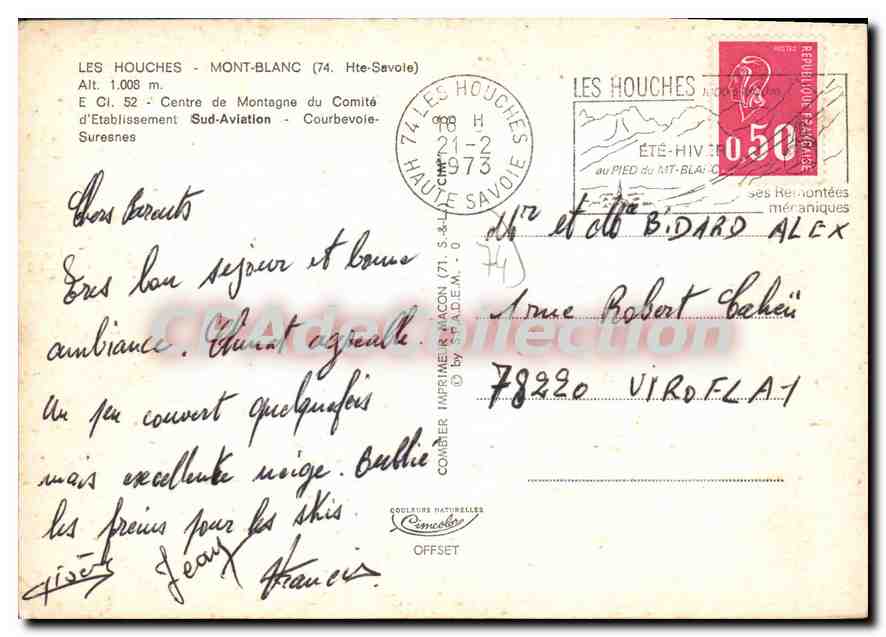 LES HOUCHES - MONT-BLANC (74. Hte-Savoie)
Alt. 1.008 m.
E Ci. 52 - Centre de Montagne du Comité
d'Etablissement Sud-Aviation - Courbevoie-
Suresnes
74 LES HOUCHES
18 H
21-2
1973
HAUTE SAVOIE
LES HOUCHES
ÉTÉ-HIVER
au PIED du MT-BLANC
ses Remontées
mécaniques
POSTES
REPUBLIQUE FRANÇAISE
0,50
Chers Parents
Très bon séjour et bonne
ambiance. Climat agréable.
Un peu couvert quelquefois
mais excellente neige. Oublié
les freins pour les skis.
Gisèle Jean Francis
COMBIER IMPRIMEUR MACON (71. S.-&-L.) "CIM"
© by S.P.A.D.E.M. - 0
COULEURS NATURELLES
Cimcolor
OFFSET
74
Mr et Me BIDARD ALEX
1 rue Robert Cahen
78220 VIROFLAY
CPAdeCollection